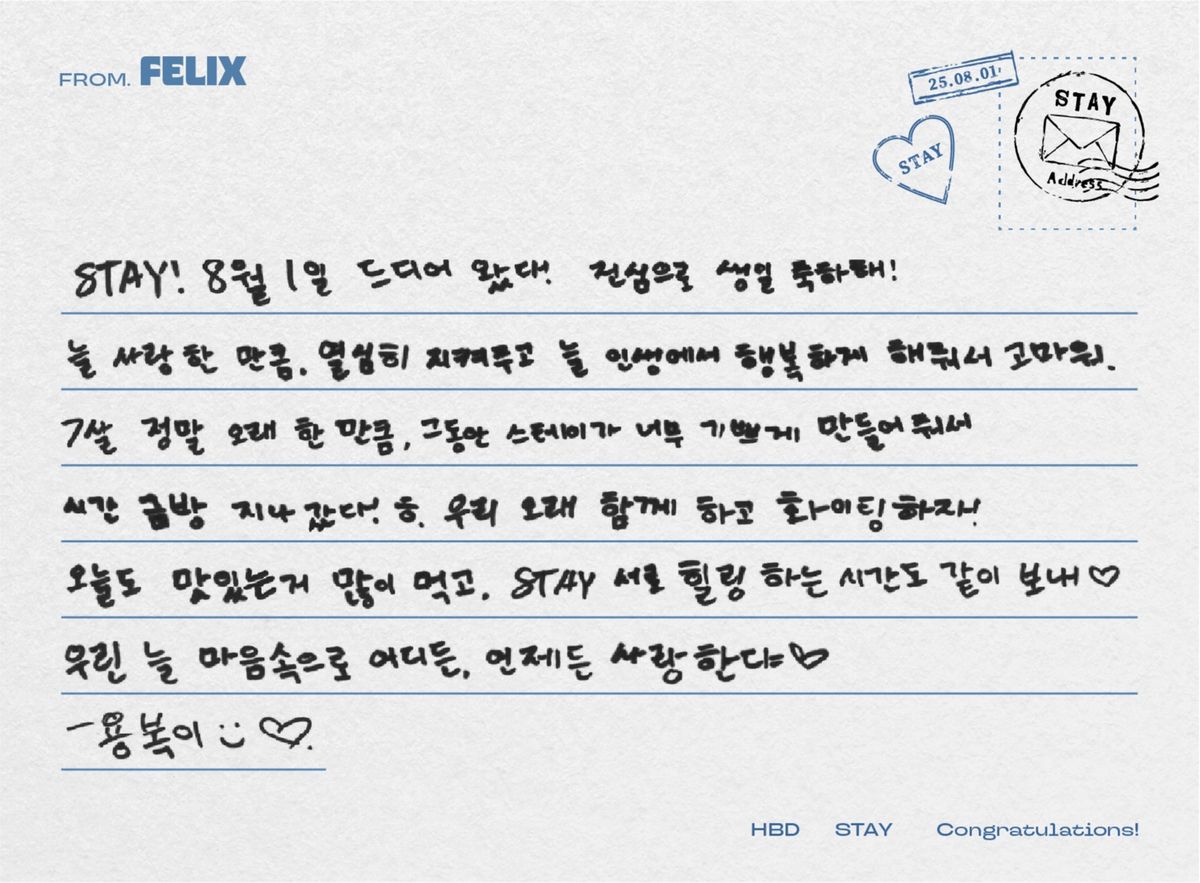 FROM. FELIX
25.08.01
STAY
STAY
Address
STAY! 8월 1일 드디어 왔다! 진심으로 생일 축하해!
늘 사랑한 만큼, 열심히 지켜주고 늘 인생에서 행복하게 해줘서 고마워.
7살 정말 오래 한 만큼, 그동안 스테이가 너무 기쁘게 만들어 줘서
시간 금방 지나 갔다! ㅎ. 우리 오래 함께 하고 화이팅하자!
오늘도 맛있는거 많이 먹고, STAY 서로 힐링 하는 시간도 같이 보내♡
우린 늘 마음속으로 어디든, 언제든 사랑한다♡
-용복이 :) ♡.
HBD STAY Congratulations!